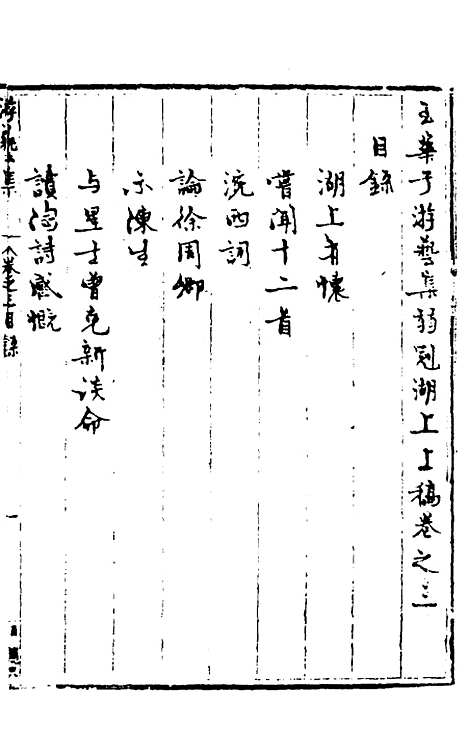 玉華子游藝集弱冠湖上上稿卷之三
目錄
湖上有懷
嘗聞十二首
浣西詞
論徐周鄉
示陳生
与星士曾克新談命
讀陶詩感慨
游藝集
卷之三目錄
一